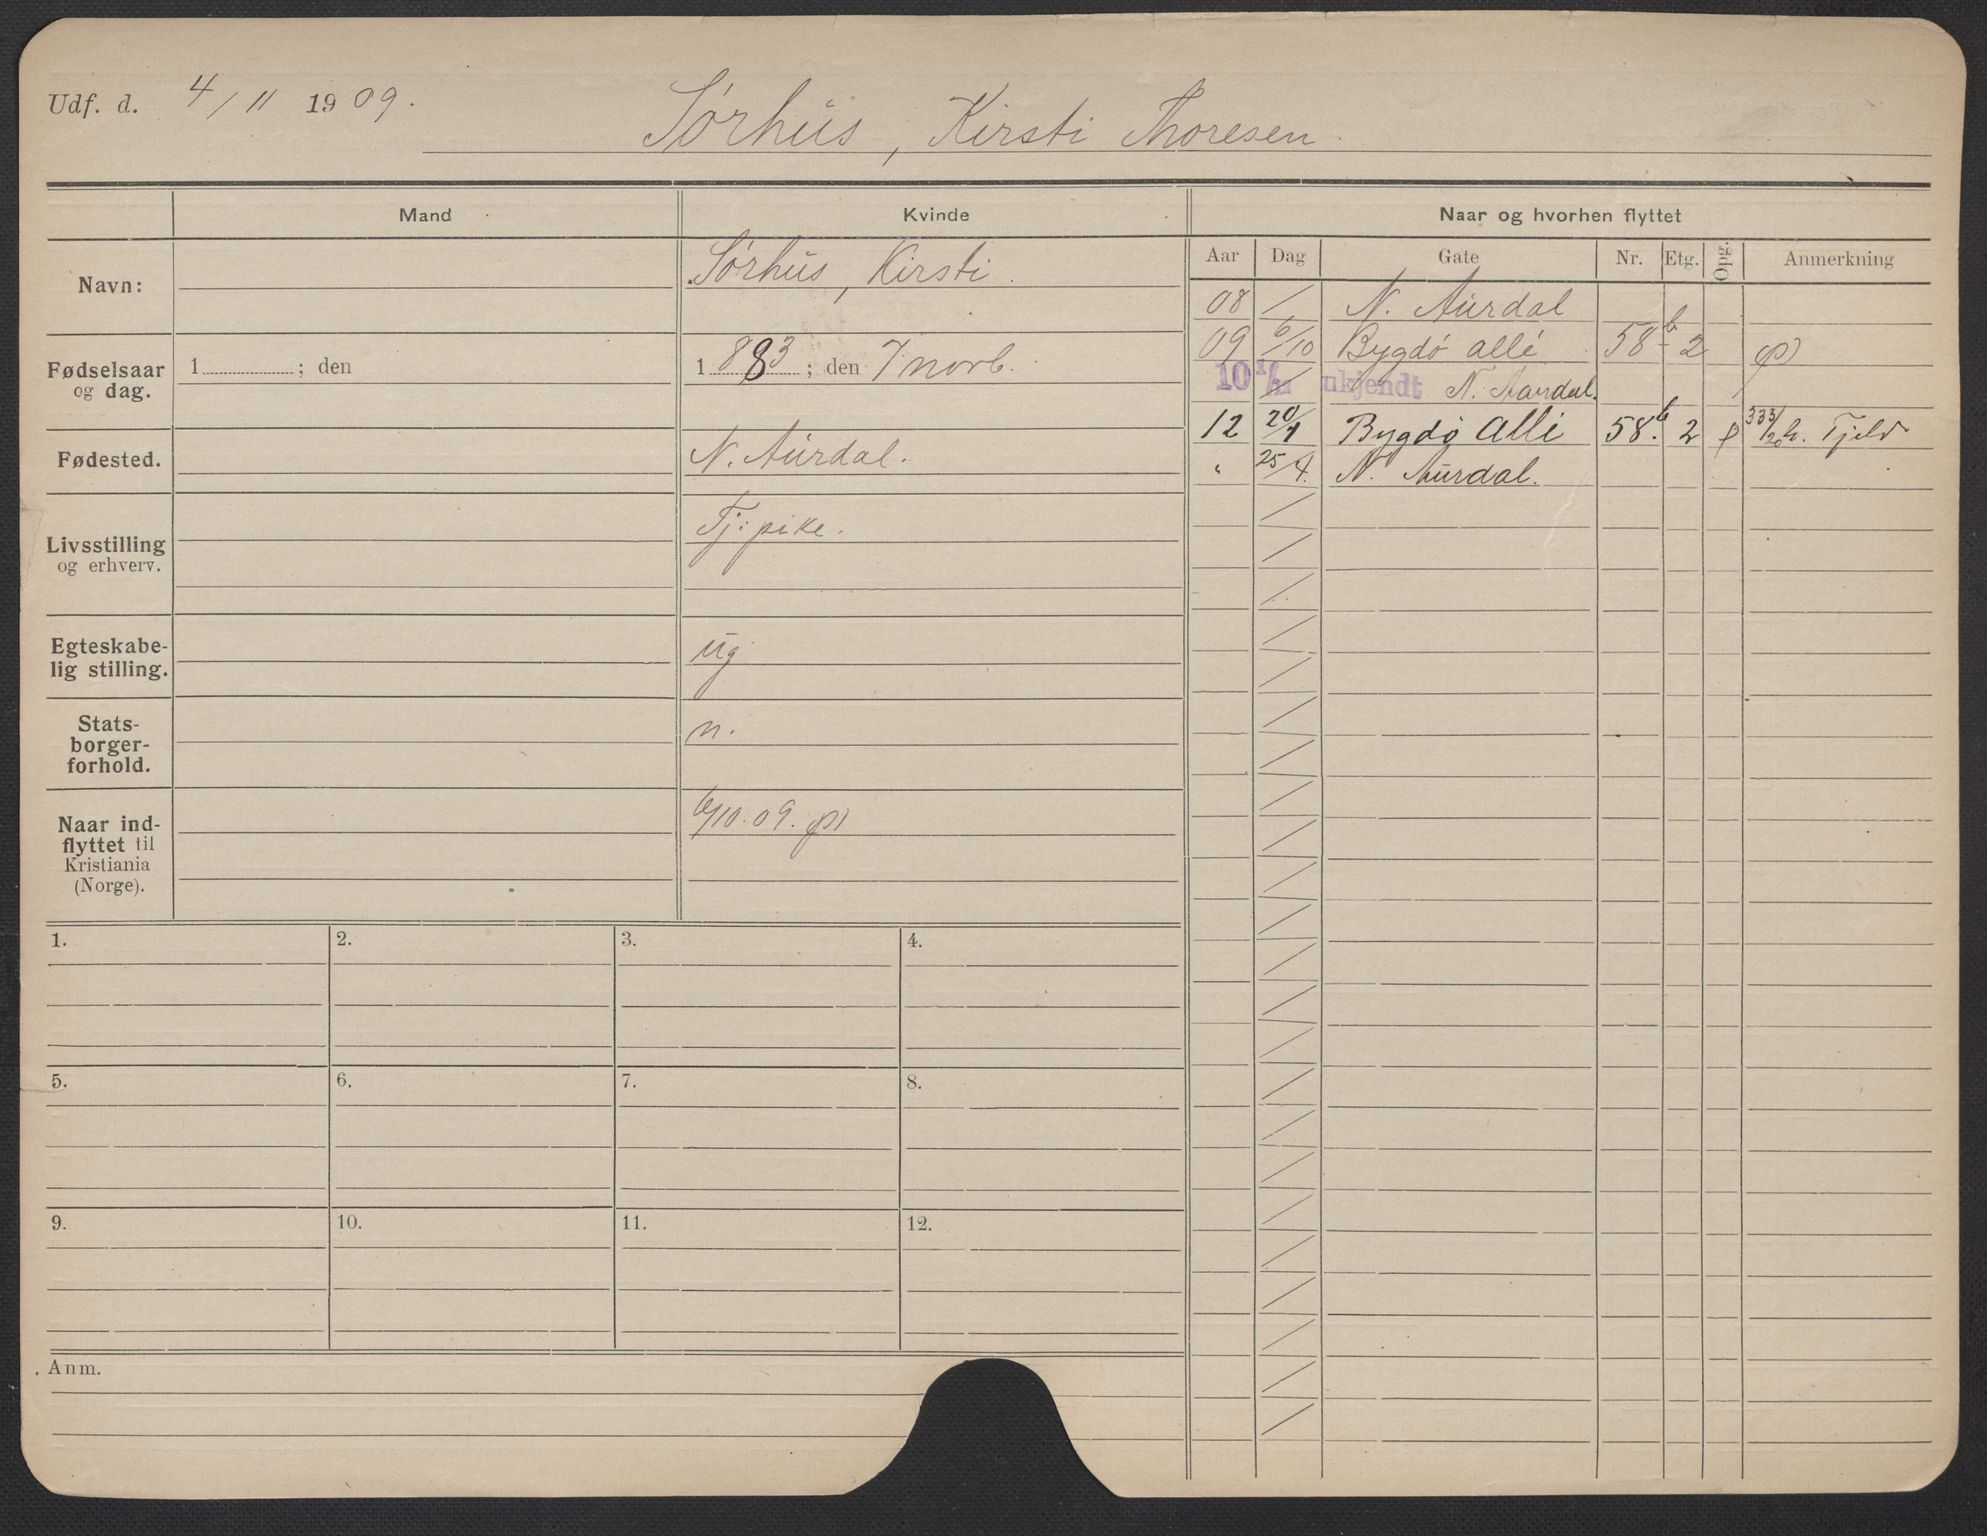 Udf. d. 4/11 1909.
Sørhus, Kirsti Thoresen.
Mand
Kvinde
Naar og hvorhen flyttet
Aar Dag Gate Nr. Etg. Opg. Anmerkning
Navn:
Sørhus, Kirsti.
Fødselsaar
og dag.
1 ; den
1883; den 7 novb.
Fødested.
N. Aurdal.
Livsstilling
og erhverv.
Tj: pike.
Egteskabe-
lig stilling.
ug
Stats-
borger-
forhold.
n.
Naar ind-
flyttet til
Kristiania
(Norge).
6/10.09.
08 / N. Aurdal
09 6/10 Bygdö allé 58b 2
10 1/12 ukjendt N. Aurdal.
12 20/1 Bygdö Allé 58b. 2 333/20 h. Tjeld
" 25/4. N. Aurdal.
1. 2. 3. 4.
5. 6. 7. 8.
9. 10. 11. 12.
Anm.